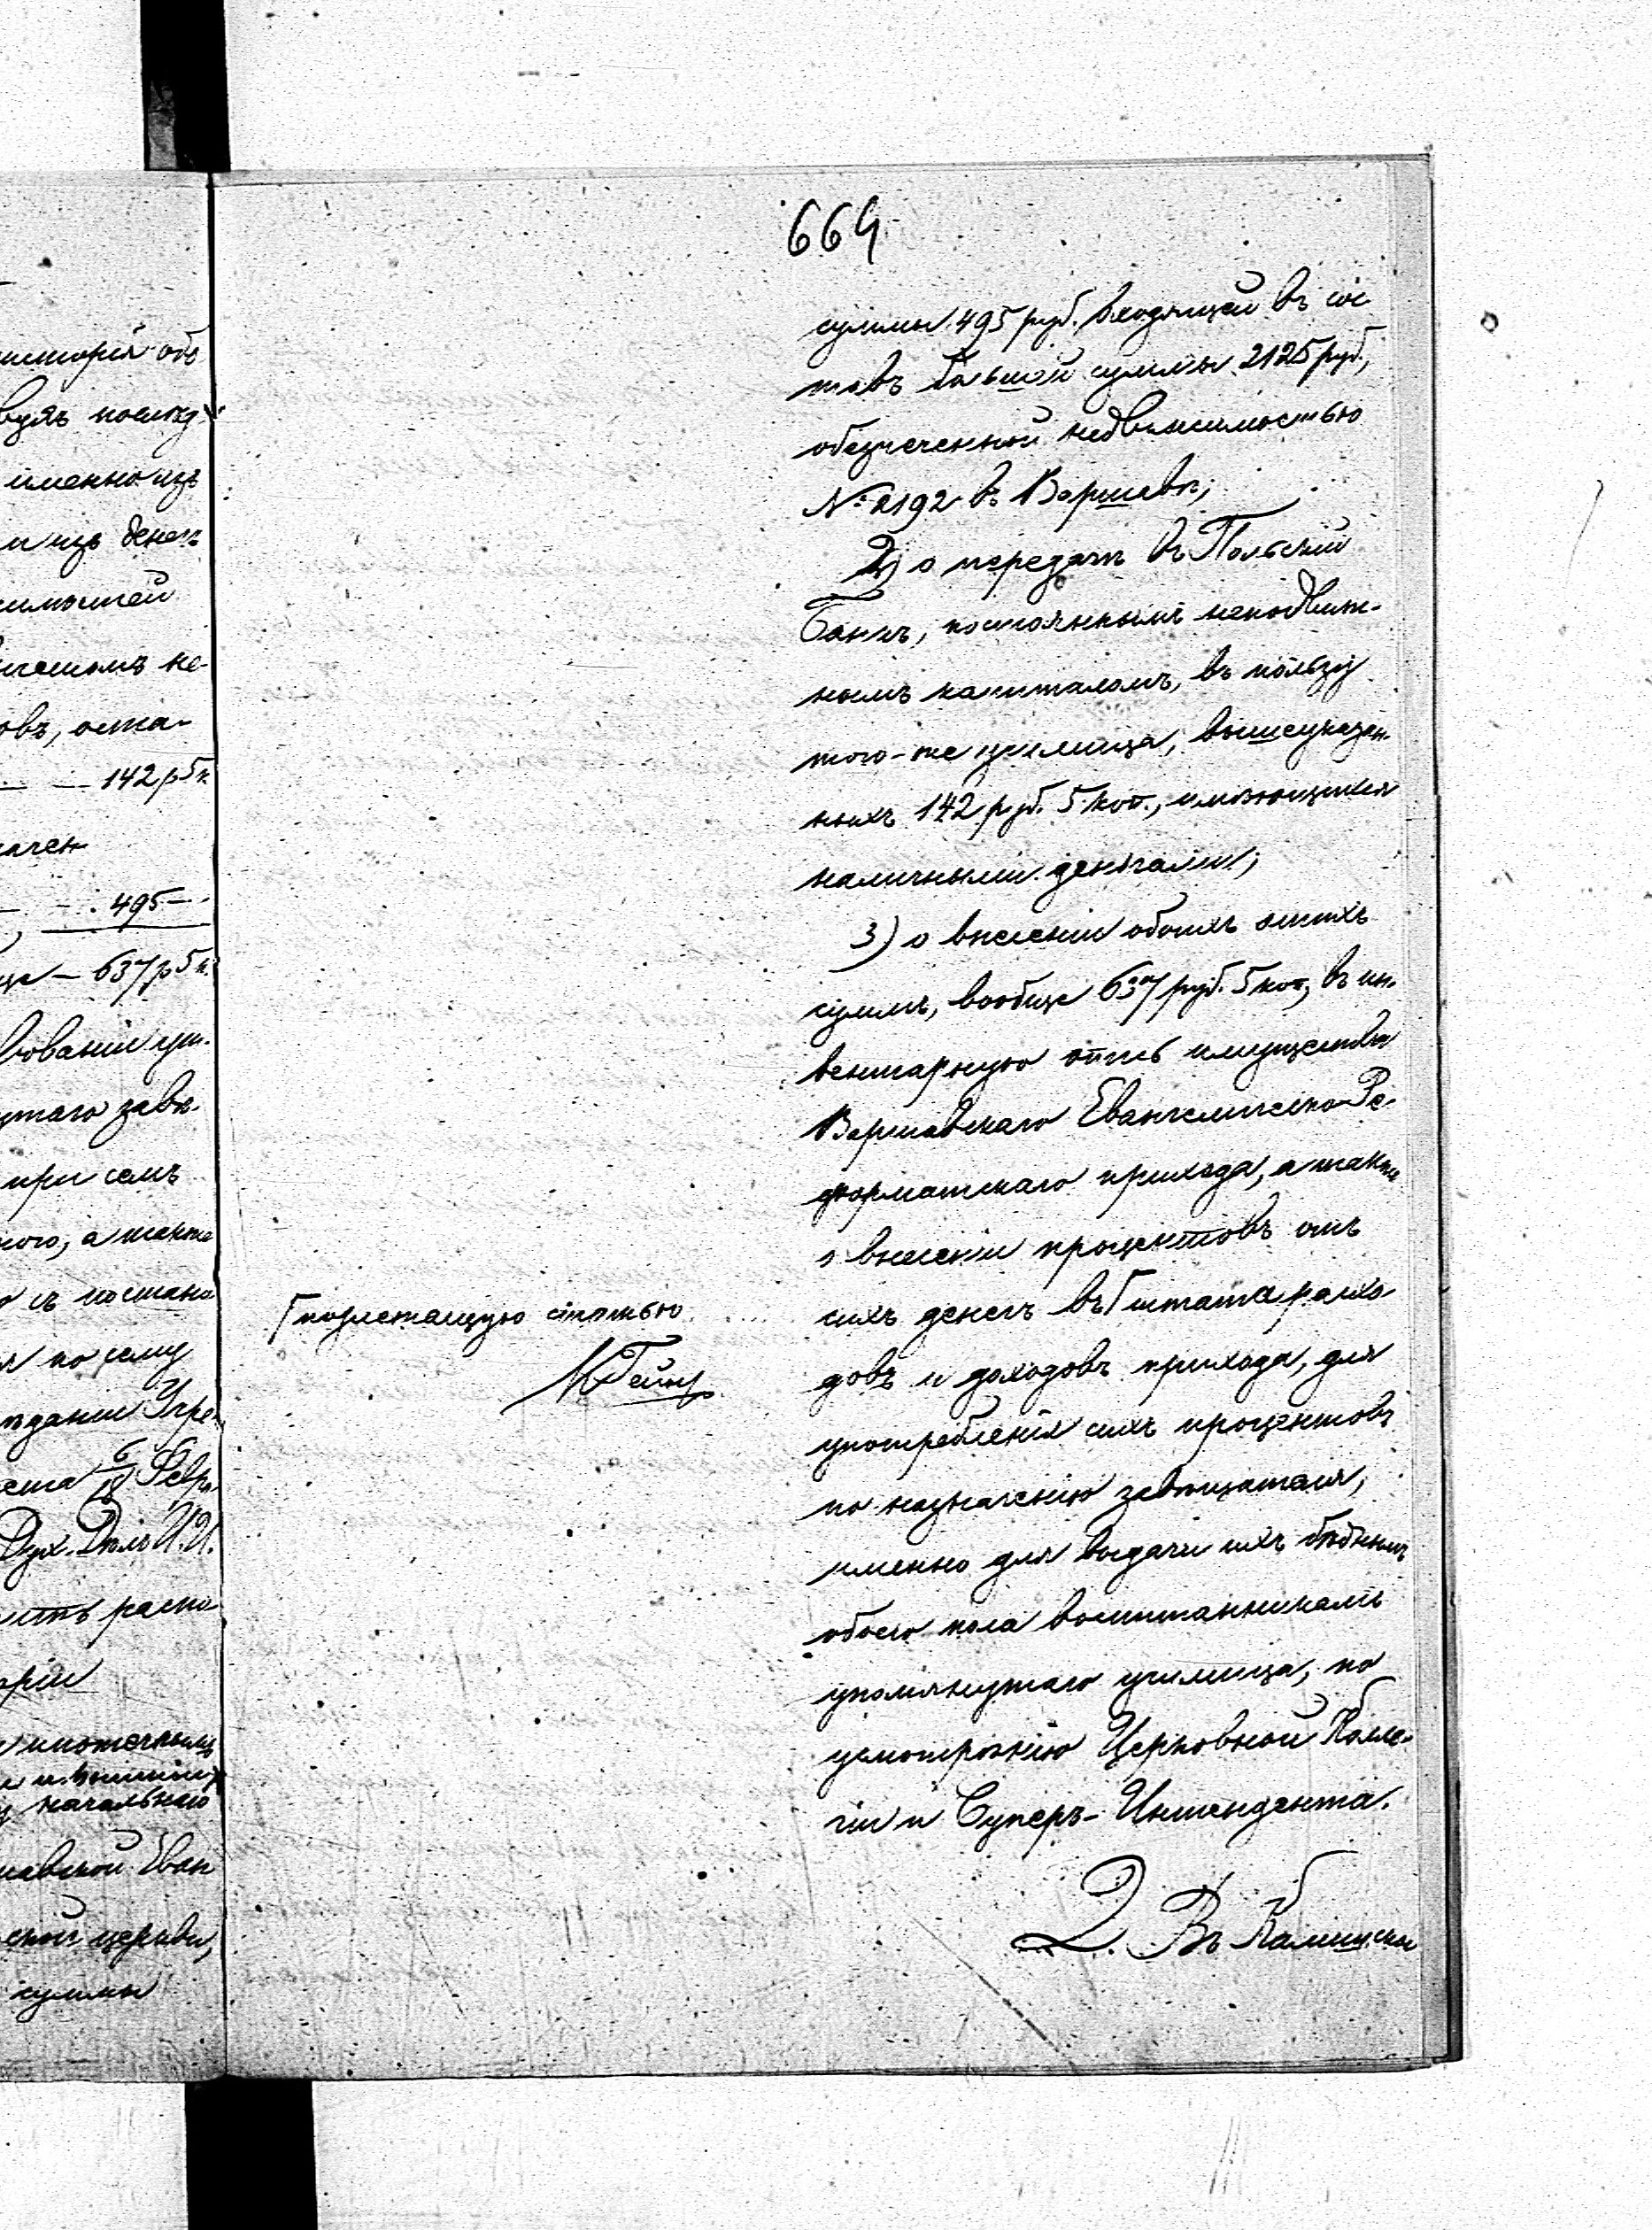 664
суммы 495 руб. входящей въ сос
тавъ большой суммы 2125 руб.,
обезпеченной недвижимостью
№ 2192 въ Варшавѣ;
2) о передачѣ въ Польскій
Банкъ, постояннымъ неподвиж-
нымъ капиталомъ, въ пользу
того-же училища, вышеуказан-
ныхъ 142 руб. 5 коп., имѣющихся
наличными деньгами;
3) о внесеніи обоихъ этихъ
суммъ, вообще 637 руб. 5 коп, въ ин-
вентарную опись имущества
Варшавскаго Евангелическо-Ре-
форматскаго прихода, а также
о внесеніи процентовъ отъ
сихъ денегъ въ Г штата расхо
довъ и доходовъ прихода, для
употребленія сихъ процентовъ
по назначенію завѣщателя,
именно для выдачи ихъ бѣднымъ
обоего пола воспитанникамъ
упомянутаго училища, по
усмотрѣнію Церковной Колле-
гіи и Суперъ-Интендента.
2. Въ Калишскы
Г подлежащую статью
исторія объ
именно изъ
и изъ денегъ
не-
овъ, оста-
142 р 5 к
ачен
495 —
637 р 5 к.
утаго завѣ-
при семъ
ного, а также
съ постано
по сему
6/18 Февр.
Дух. Дѣлъ И. И.
распо
ріи
ипотечныхъ
начальнаго
шавской Еван
ской церкви,
суммы